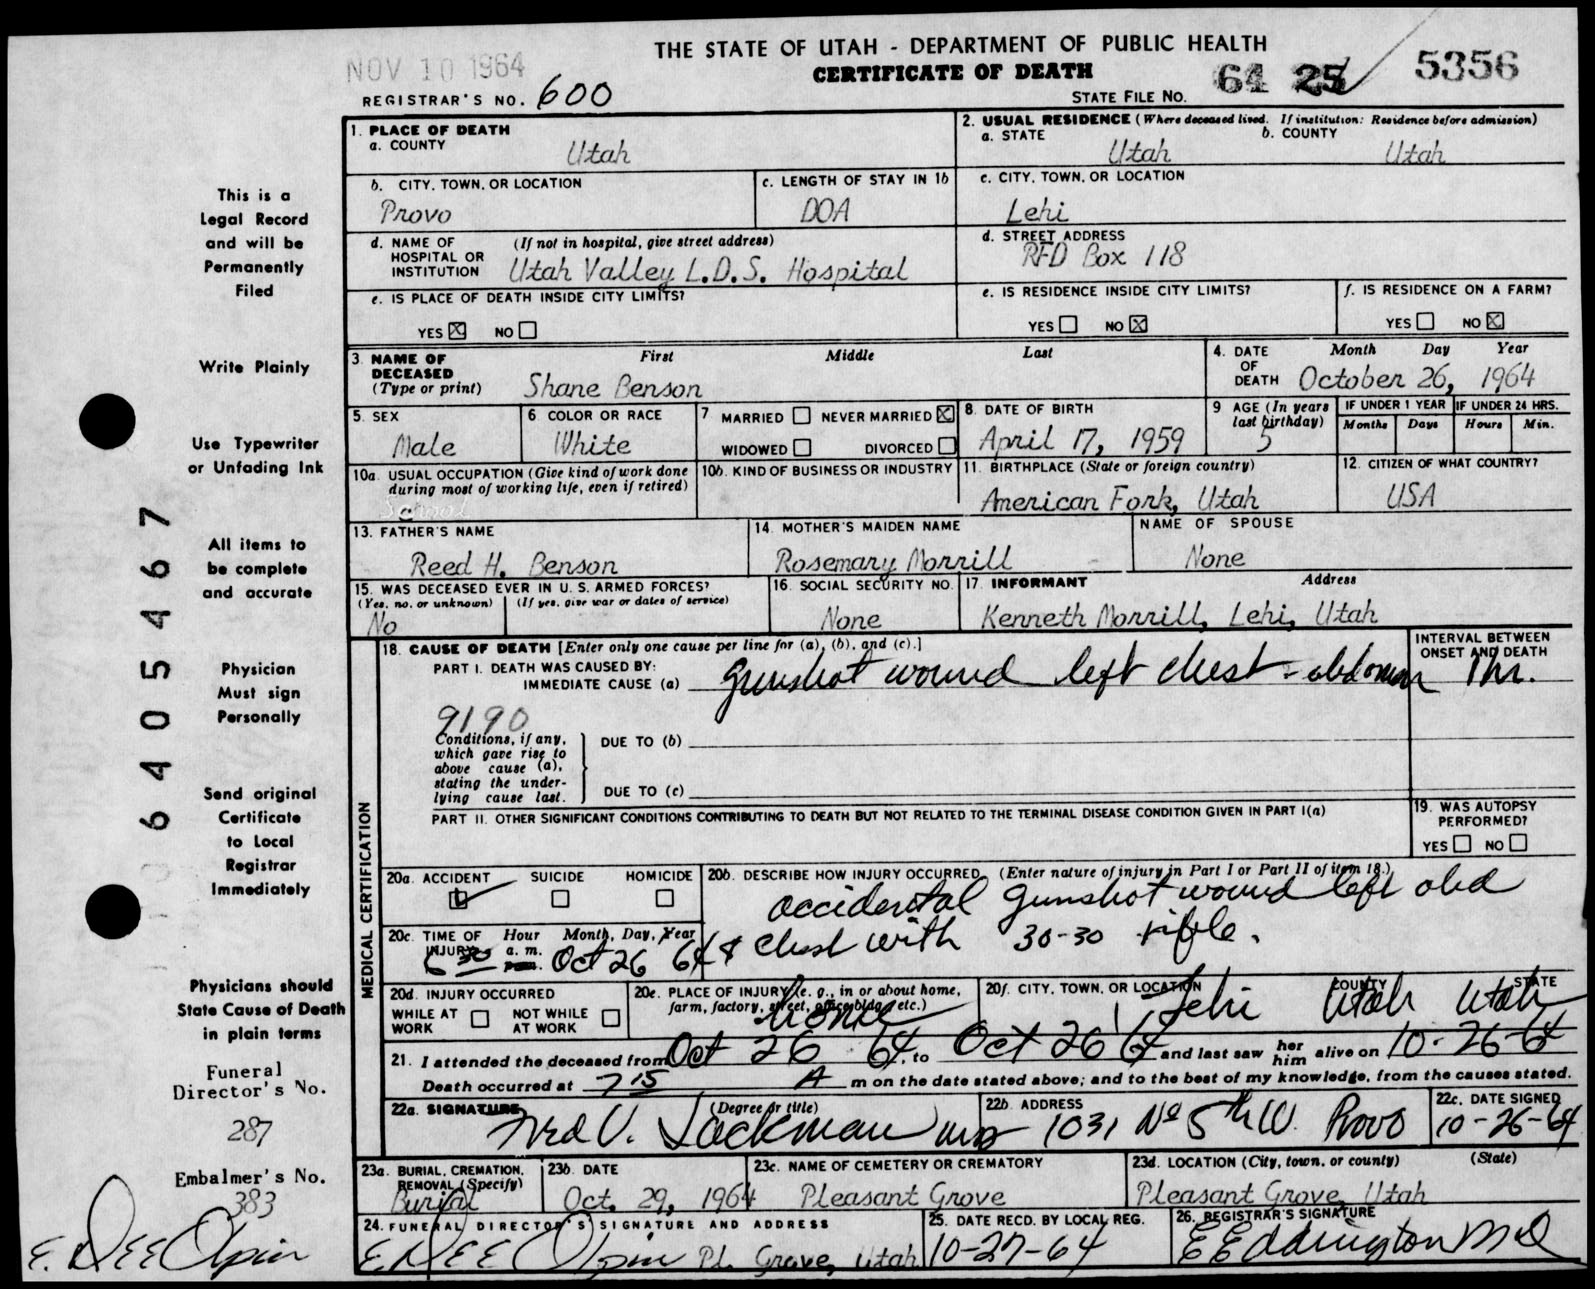 THE STATE OF UTAH - DEPARTMENT OF PUBLIC HEALTH
NOV 10 1964
CERTIFICATE OF DEATH
64 25 5356
REGISTRAR'S NO. 600
STATE FILE NO.
1. PLACE OF DEATH
a. COUNTY
Utah
2. USUAL RESIDENCE (Where deceased lived. If institution: Residence before admission)
a. STATE b. COUNTY
Utah Utah
b. CITY, TOWN, OR LOCATION
Provo
c. LENGTH OF STAY IN 1b
DOA
c. CITY, TOWN, OR LOCATION
Lehi
d. NAME OF HOSPITAL OR INSTITUTION (If not in hospital, give street address)
Utah Valley L.D.S. Hospital
d. STREET ADDRESS
RFD Box 118
e. IS PLACE OF DEATH INSIDE CITY LIMITS?
YES ☒ NO ☐
e. IS RESIDENCE INSIDE CITY LIMITS?
YES ☐ NO ☒
f. IS RESIDENCE ON A FARM?
YES ☐ NO ☒
3. NAME OF DECEASED (Type or print) First Middle Last
Shane Benson
4. DATE OF DEATH Month Day Year
October 26, 1964
5. SEX
Male
6 COLOR OR RACE
White
7 MARRIED ☐ NEVER MARRIED ☒
WIDOWED ☐ DIVORCED ☐
8. DATE OF BIRTH
April 17, 1959
9 AGE (In years last birthday)
5
IF UNDER 1 YEAR
Months Days
IF UNDER 24 HRS.
Hours Min.
10a. USUAL OCCUPATION (Give kind of work done during most of working life, even if retired)
School
10b. KIND OF BUSINESS OR INDUSTRY
11. BIRTHPLACE (State or foreign country)
American Fork, Utah
12. CITIZEN OF WHAT COUNTRY?
USA
13. FATHER'S NAME
Reed H. Benson
14. MOTHER'S MAIDEN NAME
Rosemary Morrill
NAME OF SPOUSE
None
15. WAS DECEASED EVER IN U. S. ARMED FORCES?
(Yes, no, or unknown) (If yes, give war or dates of service)
No
16. SOCIAL SECURITY NO.
None
17. INFORMANT Address
Kenneth Morrill, Lehi, Utah
MEDICAL CERTIFICATION
18. CAUSE OF DEATH [Enter only one cause per line for (a), (b), and (c).]
INTERVAL BETWEEN ONSET AND DEATH
PART I. DEATH WAS CAUSED BY:
IMMEDIATE CAUSE (a) Gunshot wound left chest - abdomen 1 hr.
9190
Conditions, if any, which gave rise to above cause (a), stating the underlying cause last.
DUE TO (b)
DUE TO (c)
PART II. OTHER SIGNIFICANT CONDITIONS CONTRIBUTING TO DEATH BUT NOT RELATED TO THE TERMINAL DISEASE CONDITION GIVEN IN PART I(a)
19. WAS AUTOPSY PERFORMED?
YES ☐ NO ☐
20a. ACCIDENT SUICIDE HOMICIDE
20b. DESCRIBE HOW INJURY OCCURRED (Enter nature of injury in Part I or Part II of item 18.)
accidental Gunshot wound left abd
& chest with 30-30 rifle.
20c. TIME OF INJURY Hour Month, Day, Year
a. m.
6 30 Oct 26 64
20d. INJURY OCCURRED
WHILE AT WORK ☐ NOT WHILE AT WORK ☐
20e. PLACE OF INJURY (e. g., in or about home, farm, factory, street, office bldg., etc.)
home
20f. CITY, TOWN, OR LOCATION COUNTY STATE
Lehi Utah Utah
21. I attended the deceased from Oct 26 64, to Oct 26 64 and last saw her him alive on 10-26-64
Death occurred at 7 15 A m on the date stated above; and to the best of my knowledge, from the causes stated.
22a. SIGNATURE (Degree or title)
Fred V. Jackman MD
22b. ADDRESS
1031 No 5th W. Provo
22c. DATE SIGNED
10-26-64
23a. BURIAL, CREMATION, REMOVAL (Specify)
Burial
23b. DATE
Oct. 29, 1964
23c. NAME OF CEMETERY OR CREMATORY
Pleasant Grove
23d. LOCATION (City, town, or county) (State)
Pleasant Grove, Utah
24. FUNERAL DIRECTOR'S SIGNATURE AND ADDRESS
E. DEE Olpin Pl. Grove, Utah
25. DATE RECD. BY LOCAL REG.
10-27-64
26. REGISTRAR'S SIGNATURE
E Eddington MD
This is a
Legal Record
and will be
Permanently
Filed
Write Plainly
Use Typewriter
or Unfading Ink
All items to
be complete
and accurate
Physician
Must sign
Personally
Send original
Certificate
to Local
Registrar
Immediately
Physicians should
State Cause of Death
in plain terms
Funeral
Director's No.
287
Embalmer's No.
383
E. DEE Olpin
6405467